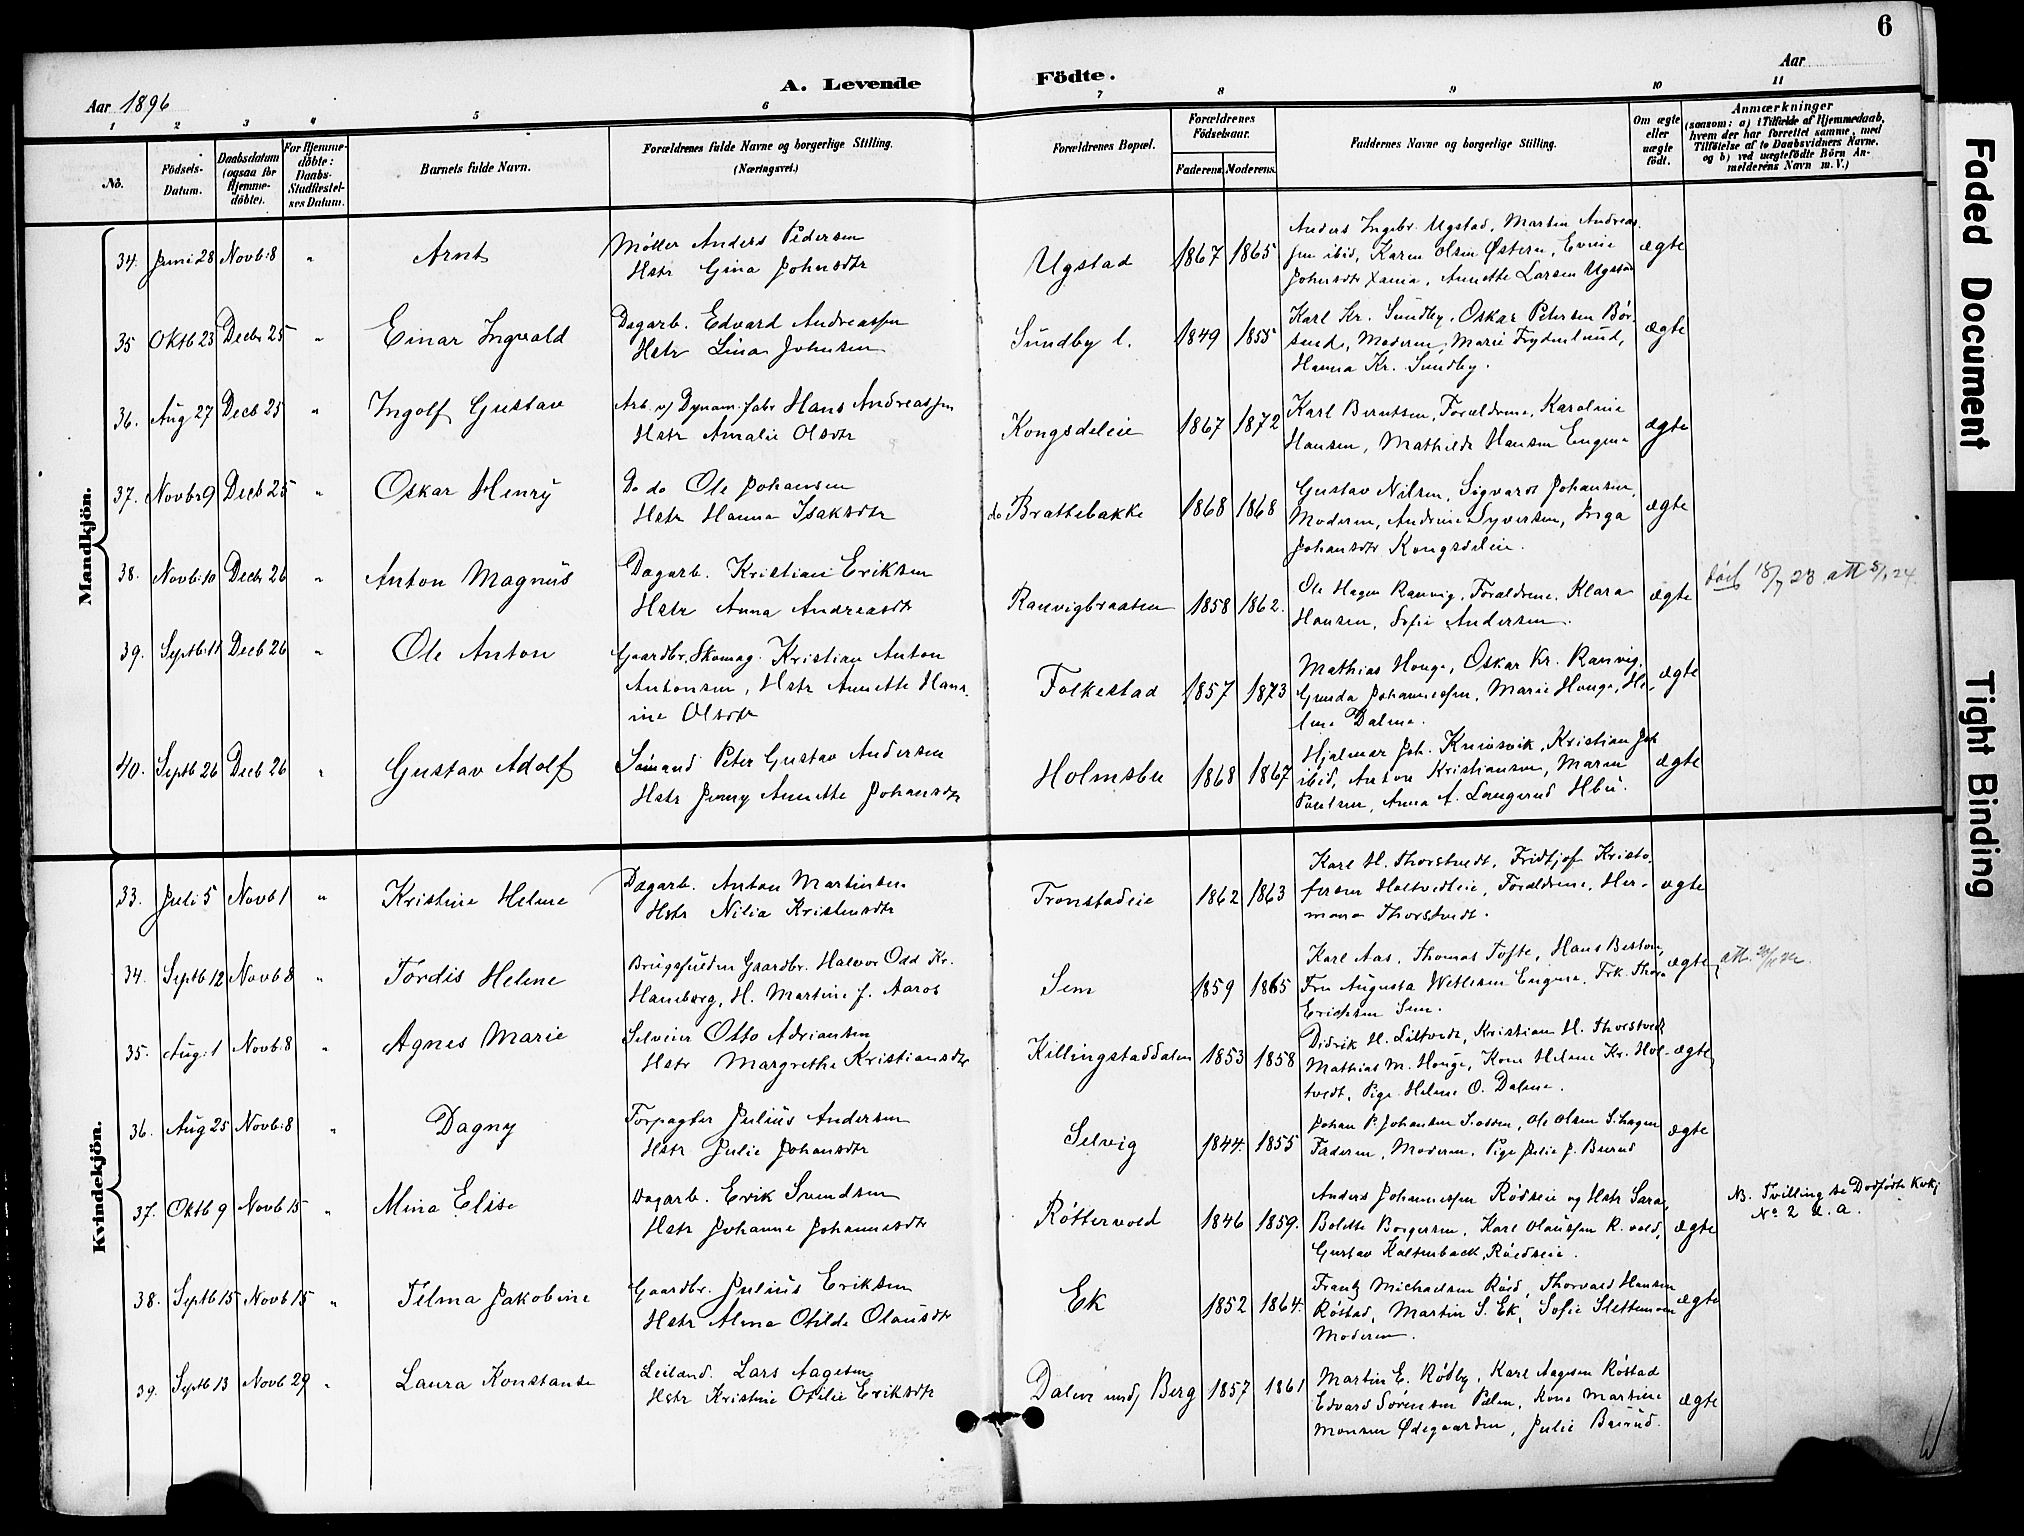 6
A. Levende Födte.
Aar 1896
Aar
1 2 3 4 5 6 7 8 9 10 11
No.
Födsels-Datum.
Daabsdatum (ogsaa for Hjemme-döbte).
For Hjemme-döbte: Daabs-Stadfæstel-ses Datum.
Barnets fulde Navn.
Forældrenes fulde Navne og borgerlige Stilling. (Næringsvei.)
Forældrenes Bopæl.
Forældrenes Födselsaar.
Faderens. Moderens.
Faddernes Navne og borgerlige Stilling.
Om ægte eller uægte födt.
Anmærkninger
(saasom: a) i Tilfælde af Hjemmedaab,
hvem der har forrettet samme, med
Tilföielse af to Daabsvidners Navne,
og b) ved uægtefödte Börn An-
melderens Navn m. V.)
Mandkjön.
34. Juni 28 Novb: 8 " Arnt
Møller Anders Pedersen
Hstr Gina Johnsdtr
Ugstad 1867 1865
Anders Ingebr. Ugstad, Martin Andreas-
sen ibid, Karen Olsen Østern, Evine
Johnsdtr Xania, Annette Larsen Ugstad
ægte
35 Oktb 23 Decbr 25 " Einar Ingvald
Dagarb. Edvard Andreassen
Hstr Lina Johnsen
Sundby l. 1849 1855
Karl Kr. Sundby, Oskar Petersen Bør-
sund, Moderen, Marie Frydenlund,
Hanna Kr. Sundby.
ægte
36. Aug 27 Decb 25 " Ingolf Gustav
Arb. v/ Dynam. fabr Hans Andreassen
Hstr Amalie Olsdtr
Kongsdeleie 1867 1872
Karl Berntsen, Forældrene, Karoline
Hansen, Mathilde Hansen Engene
ægte
37. Novbr 9 Decb 25 " Oskar Henry
Do do Ole Johansen
Hstr Hanna Isaksdtr
do Brattebakke 1868 1868
Gustav Nilsen, Sigvard Johansen,
Moderen, Andrine Syversen, Inga
Johansdtr Kongsdeleie.
ægte
38. Novb: 10 Decbr 26 " Anton Magnus
Dagarb. Kristian Eriksen
Hstr Anna Andreasdtr
Ranvigbraaten 1858 1862.
Ole Hagen Ranvig, Forældrene, Klara
Hansen, Sofie Andersen.
ægte
18/7 23 att 5/1 24.
39. Septb: 11 Decb 26 " Ole Anton
Gaardbr. Skomag. Kristian Anton
Antonsen, Hstr Annette Hans-
ine Olsdtr
Folkestad 1857 1873
Mathias Houge, Oskar Kr. Ranvig,
Gunda Johannessen, Marie Houge, He-
lene Dalene.
ægte
40. Septb 26 Decb 26 " Gustav Adolf
Sømand Peter Gustav Andersen
Hstr Jenny Annette Johansdtr
Holmsbu 1868 1867
Hjalmar Joh. Knivsvik, Kristian Joh
ibid, Anton Kristiansen, Maren
Poulsen, Anna A. Langerud Hbu.
ægte
Kvindekjön.
33. Juli 5 Novb 1 " Kristine Helene
Dagarb. Anton Martinsen
Hstr Nilia Kristensdtr
Tronstadeie 1862 1863
Karl H. Thorstvedt, Fridtjof Kristo-
fersen Holtvedteie, Forældrene, Her-
mana Thorstvedt.
ægte
34. Septb 12 Novb 8 " Tordis Helene
Gaardbr. Halvor Odd Kr.
Haneborg, H. Martine f. Aaros
Sem 1859 1865
Karl Aas, Thomas Tofte, Hans Beston,
Fru Augusta Wetlesen Engene, Frk. Thora
Erichsen Sem.
ægte
35. Aug: 1 Novb: 8 " Agnes Marie
Selveier Otto Adriansen
Hstr Margrethe Kristiansdtr
Killingstaddalen 1853 1858
Didrik H. Liltvedt, Kristian H. Thorstvedt
Mathias M. Houge, Kone Helene Kr. Hol-
tvedt, Pige Helene O. Dalene.
ægte
36. Aug 25 Novb: 8 " Dagny
Forpagter Julius Andersen
Hstr Julie Johansdtr
Selvig 1844. 1855
Johan P. Johansen S.osen, Ole Olsen S.hagen
Faderen, Moderen, Pige Julie J. Burud
ægte
37. Oktb 9 Novb 15 " Mina Elise
Dagarb. Erik Svendsen
Hstr Johanne Johannesdtr
Røttervold 1846 1859.
Anders Johannessen Rødseie og Hstr Sara,
Bolette Borgersen, Karl Olaussen R.vold,
Gustav Kaltenback, Røedseie.
ægte
NB. Tvilling se Dødfødte Kvkj
No 2 d. A.
38. Septb 15 Novb 15 " Telma Jakobine
Gaardbr. Julius Eriksen
Hstr Alma Otilde Olausdtr
Ek 1852 1864.
Frantz Michaelsen Røed, Thorvald Hansen
Røstad, Martin S. Ek, Sofie Slettemoen
Moderen.
ægte
39. Septb 13 Novb 29 " Laura Konstanse
Leiland. Lars Aagesen
Hstr Kristine Otilie Eriksdtr
Dalen und/ Berg 1857 1861
Martin E. Rødby, Karl Aagesen Røstad
Edvard Sørensen Palen, Kone Martine
Monsen Ødegaarden, Julie Baurud.
ægte
Faded Document
Tight Binding